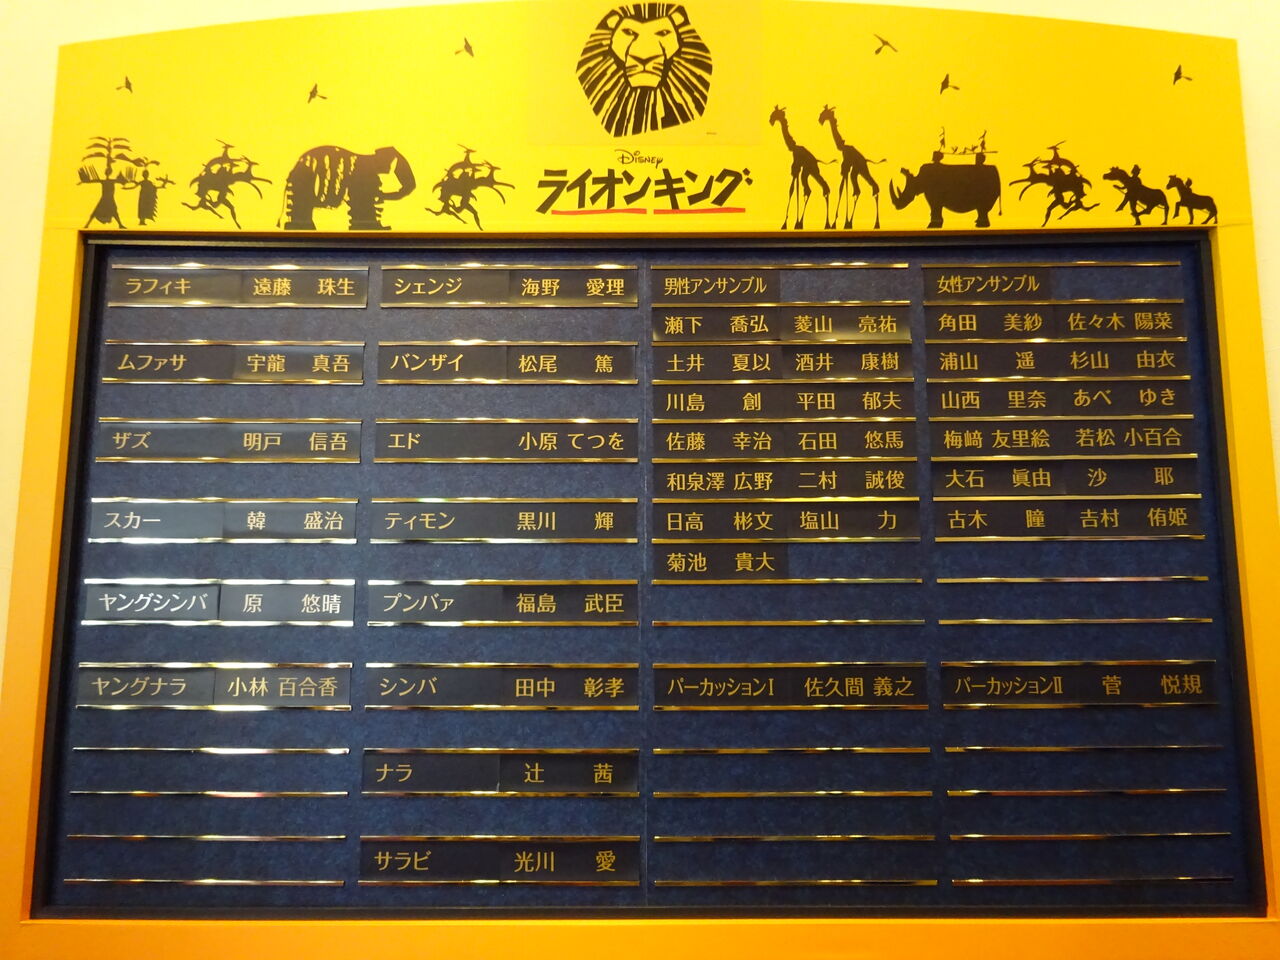 Disney
ライオンキング
ラフィキ 遠藤 珠生
ムファサ 宇龍 真吾
ザズ 明戸 信吾
スカー 韓 盛治
ヤングシンバ 原 悠晴
ヤングナラ 小林 百合香
シェンジ 海野 愛理
バンザイ 松尾 篤
エド 小原 てつを
ティモン 黒川 輝
プンバァ 福島 武臣
シンバ 田中 彰孝
ナラ 辻 茜
サラビ 光川 愛
男性アンサンブル
瀬下 喬弘 菱山 亮祐
土井 夏以 酒井 康樹
川島 創 平田 郁夫
佐藤 幸治 石田 悠馬
和泉澤 広野 二村 誠俊
日高 彬文 塩山 力
菊池 貴大
パーカッションⅠ 佐久間 義之
女性アンサンブル
角田 美紗 佐々木 陽菜
浦山 遥 杉山 由衣
山西 里奈 あべ ゆき
梅﨑 友里絵 若松 小百合
大石 眞由 沙 耶
古木 瞳 𠮷村 侑姫
パーカッションⅡ 菅 悦規